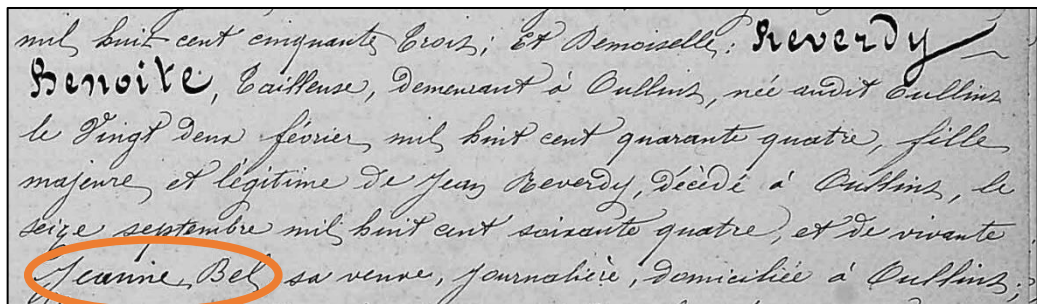 mil huit cent cinquante trois; Et Demoiselle: Reverdy
Benoite, Tailleuse, demeurant à Oullins, née audit Oullins
le Vingt deux février mil huit cent quarante quatre, fille
majeure et légitime de Jean Reverdy, décédé à Oullins, le
seize septembre mil huit cent soixante quatre, et de vivante
Jeanne Bel sa veuve, journalière, domiciliée à Oullins;